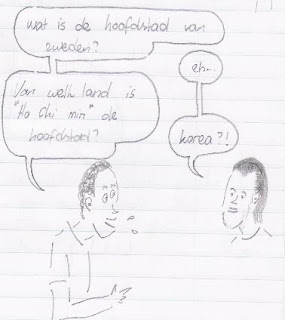 wat is de hoofdstad van
zweden?
eh...
Van welk land is
"Ho Chi min" de
hoofdstad?
korea?!